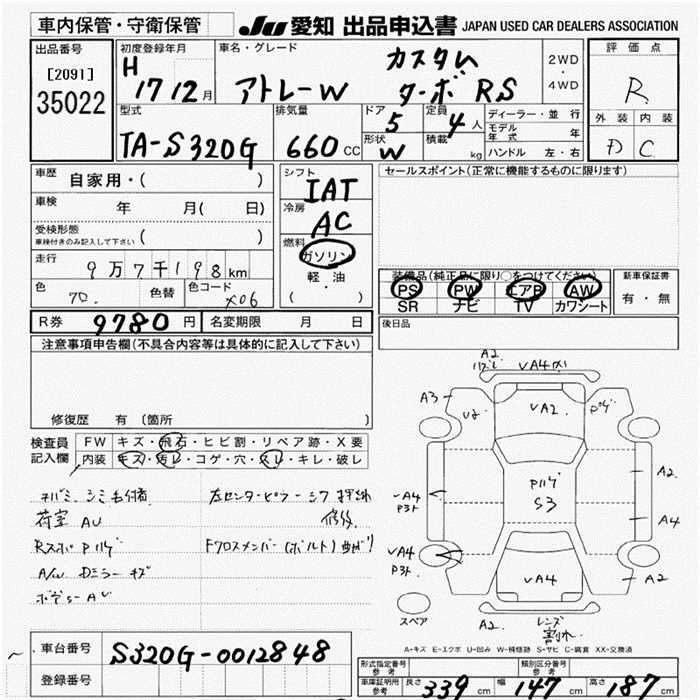 車内保管・守衛保管
JU 愛知 出品申込書 JAPAN USED CAR DEALERS ASSOCIATION
出品番号
[2091]
35022
初度登録年月
H
17 12 月
車名・グレード
アトレーW
カスタム
ターボ RS
2WD
・
4WD
評価点
R
外装 内装
D C
型式
TA-S320G
排気量
660 CC
ドア
5
形状
W
定員
4 人
積載 kg
ディーラー・並行
モデル年式 年
ハンドル 左・右
車歴
自家用・( )
車検
年 月( 日)
受検形態
車検付きのみ記入して下さい ( )
走行
9万7千198km
色
70.
色替
色コード
X06
シフト
IAT
冷房
AC
燃料
ガソリン
軽・油
( )
セールスポイント(正常に機能するものに限ります)
装備品(純正品に限り○をつけてください)
PS PW エアB AW
SR ナビ TV カワシート
新車保証書
有・無
後日品
R券 9780 円 名変期限 月 日
注意事項申告欄(不具合内容等は具体的に記入して下さい)
修復歴 有 〔箇所 〕
検査員
記入欄
FW キズ・飛石・ヒビ割・リペア跡・X要
内装 キズ・汚レ・コゲ・穴・スレ・キレ・破レ
荷室 AU
Rスポ Pハゲ
A/W Dミラー キズ
左センターピラー
Fクロスメンバー(ボルト)曲ガリ
A2
VA4
A3
VA2
Pハゲ
Pハゲ
S3
A2
VA4
A4
VA4
VA4
A2
スペア
A2
レンズ
割れ
A-キズ E-エクボ U-凹み W-補修跡 S-サビ C-腐食 XX-交換済
車台番号 S320G-0012848
登録番号
形式指定番号
参考
類別区分番号
参考
車庫証明用
参考
長さ 339 cm 幅 147 cm 高さ 187 cm